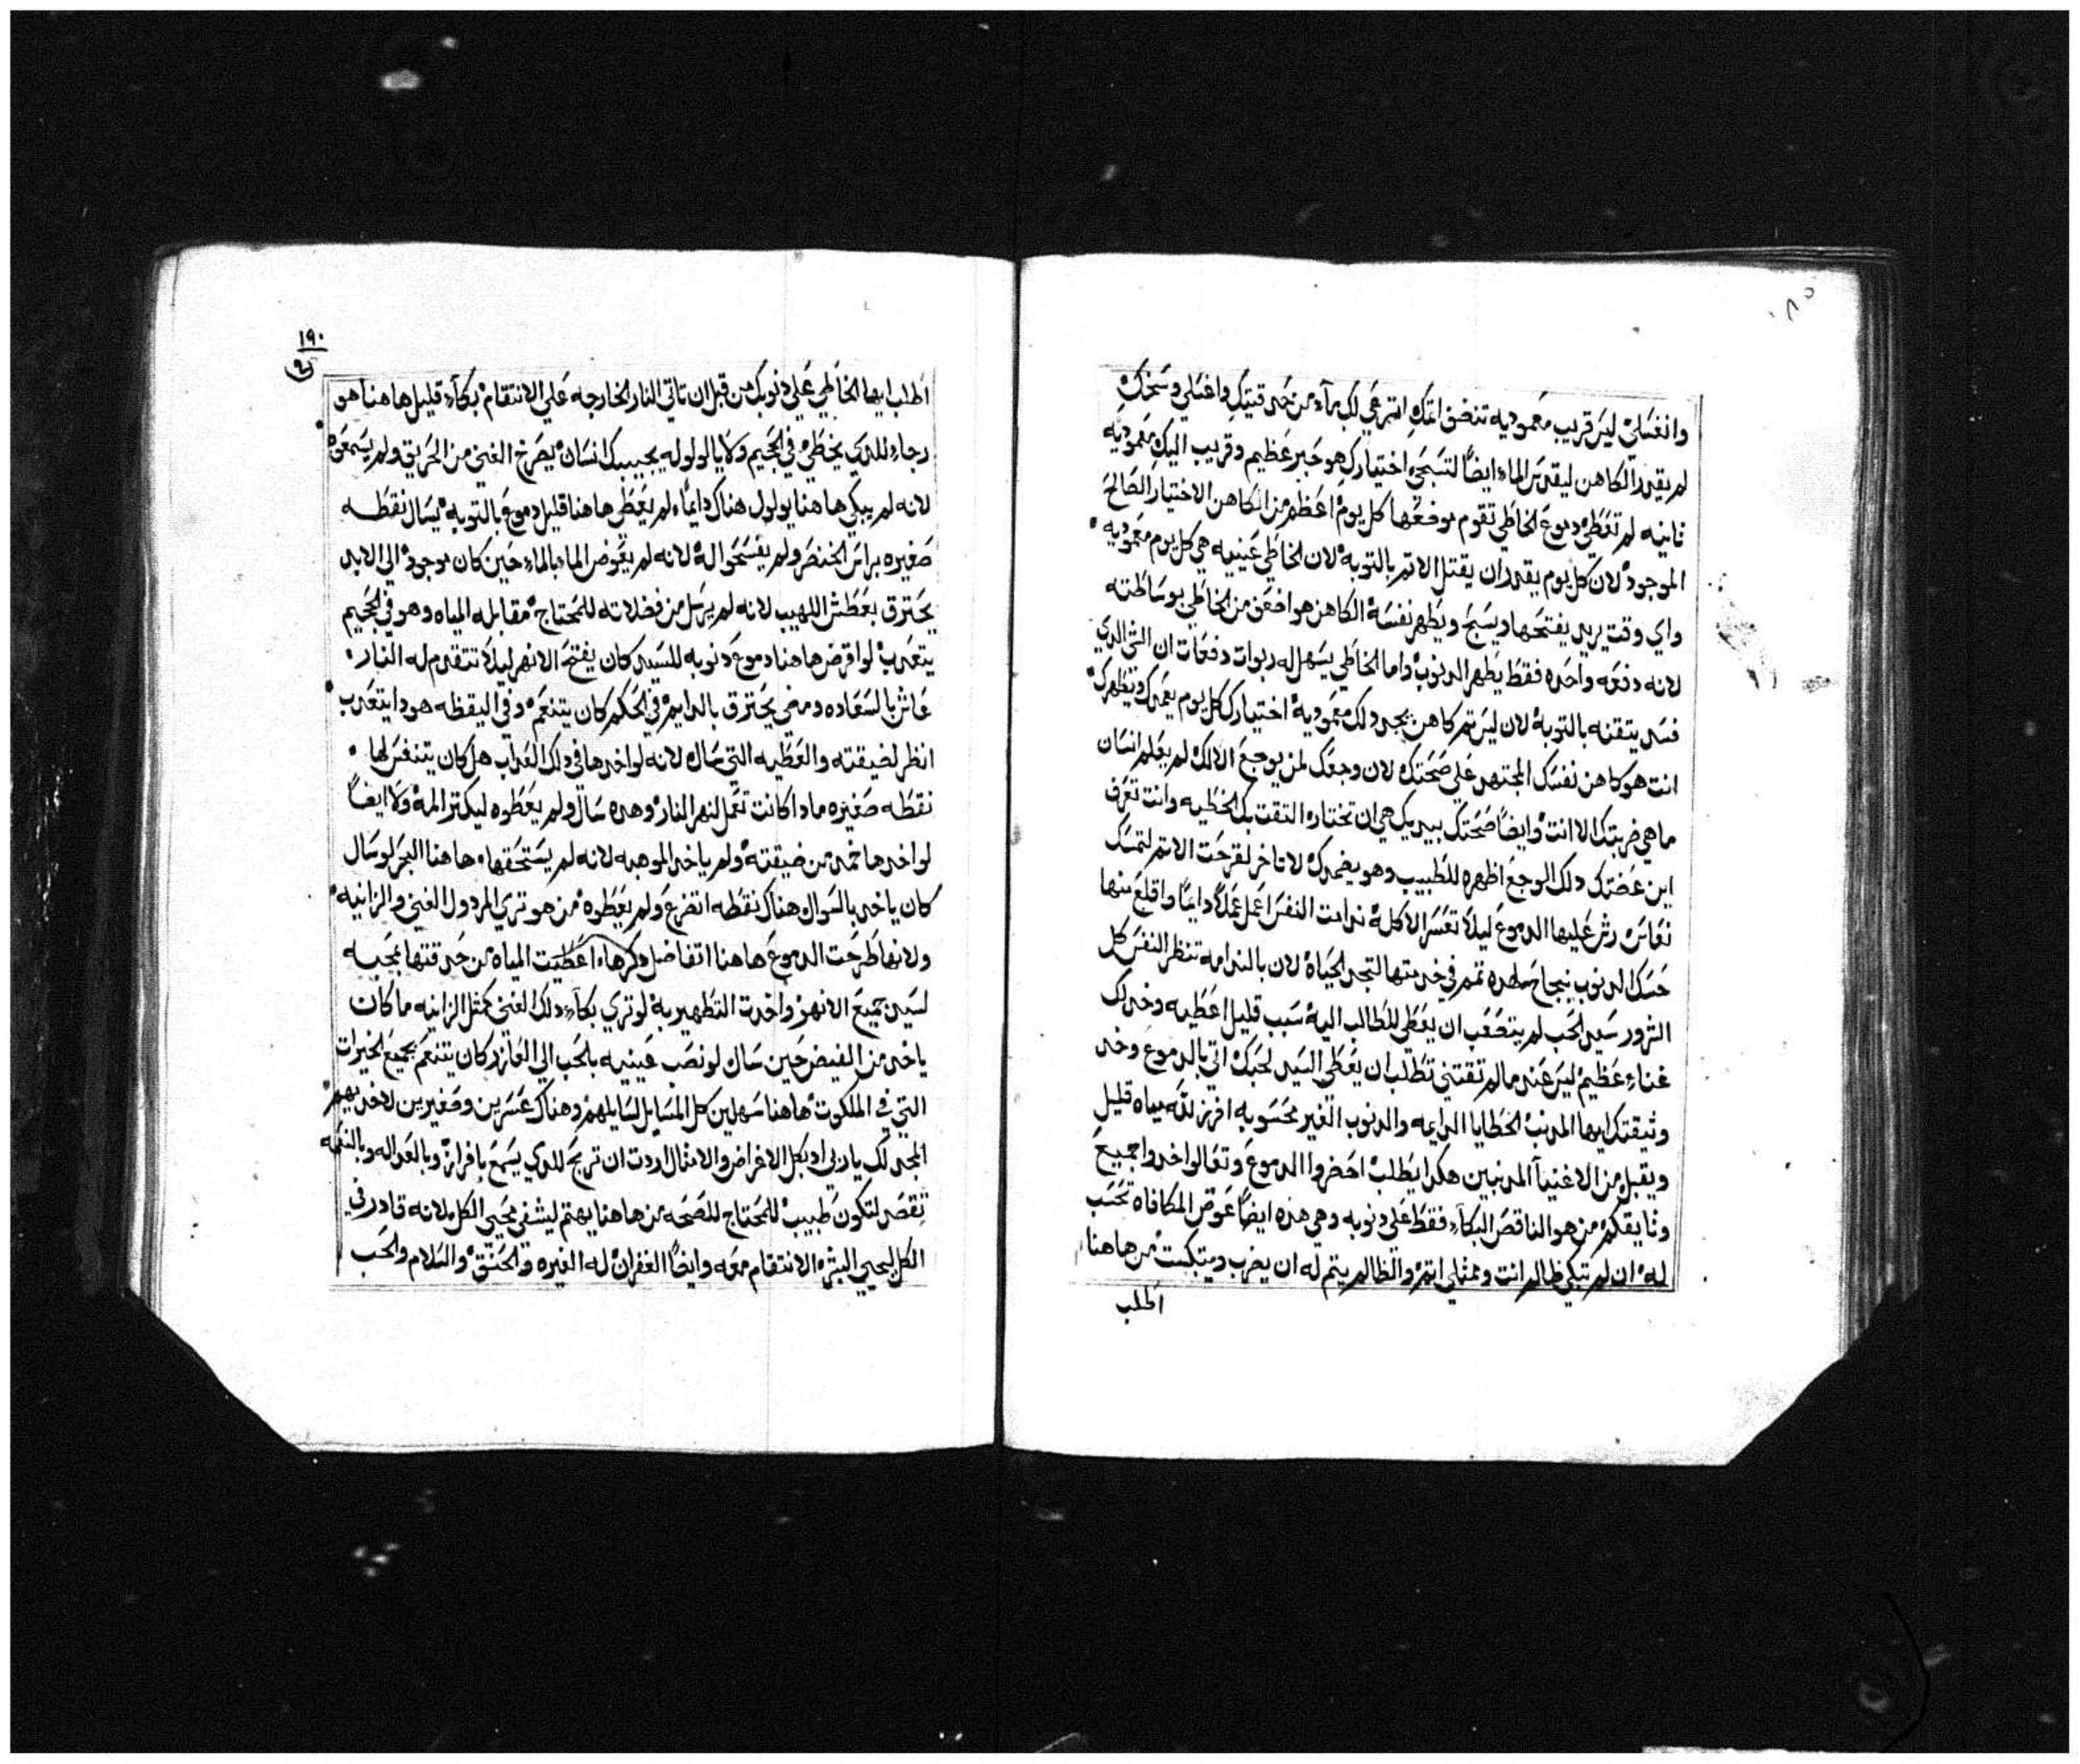 وانغسلي ليس قريب معموديه تنضق اتمك اترعي لك مآء من حدقتيك واغسلي وسخك
لم يقدر الكاهن ليقدس الماء ايضاً اختيارك هو حبر عظيم وقريب اليك معموديه
ثانيه لم تعطي دموع الخاطي تقوم موضعها كل يوم اعظم من الكاهن الاختيار الصالح
الموجود لان كل يوم يقدر ان يقتل الاتم بالتوبه لان الخاطي عينيه هي كل يوم معموديه
واي وقت يريد يفتحها ويسبح ويطهر نفسه الكاهن هو اضعف من الخاطي بوساطته
لانه دفعه واحده فقط يطهر الدنوب واما الخاطي يسهل له ربوات دفعات ان الشي الدي
فسد يتقنه بالتوبه لان ليس تم كاهن يجي دلك معموديه اختيارك كل يوم يعمدك ويطهرك
انت هو كاهن نفسك المجتهد علي صحتك لان وجعك لمن يوجع الا لك لم يعلم انسان
ما هي ضربتك الا انت وايضاً صحتك بيديك هي ان تختار التقت بك الخطيه وانت تعرف
اين عضتك دلك الوجع اظهره للطبيب وهو يضمدك لا تاخر لقرحت الاتم لتمسك
نعاس رش عليها الدموع ليلا تعسر الاكله ندامت النفس اعمل عملاً دايماً واقلع منها
حسك الدنوب بنجاح تمم في خدمتها لتجد الحياه لان بالندامه تنظر النفس كل
الشرور سعيد الحب لم يتصعب ان يعطي للطالب اليه سبب قليل اعطيه وخد لك
غناء عظيم ليس عند مالم تقتني تطلب ان يعطي السيد لحبك اتي بالدموع وخد
وثيقتك ايها المدنب الخطايا الدايمه والدنوب الغير محسوبه افرز لله مياه قليل
ويقبل من الاغنيآ المدنبين هكدا يطلب احضروا الدموع وتعالوا خدوا جميع
وثايقكم من هو الناقص البكآء فقط علي دنوبه وهي هده ايضاً عوض المكافاه تحسب
له ان لم تبكي ظالم انت وعتلي اتم والظالم يتم له ان يضرب ويتبكت من هاهنا
اطلب
١٩٠
اطلب ايها الخاطي علي دنوبك من قبل ان تاتي النار الخارجه علي الانتقام بكآء قليل هاهنا هو
رجاء للدي يخطي في الجحيم ولا يالولوله يجيبك انسان يصرخ الغني من الحريق ولم يسمعوه
لانه لم يبكي هاهنا يولول هناك دايماً لم يعطي هاهنا قليل دموع بالتوبه يسال نقطه
صغيره براس الخنصر ولم يفسحوا له لانه لم يعوض الماء بالماء حين كان موجود الي الابد
يحترق بعطش اللهيب لانه لم يرسل من فضلاته للمحتاج مقابله المياه وهو في الجحيم
يتعدب لو اقرض هاهنا دموع دنوبه للسيد كان يفتح الانهر ليلا تتقدم له النار
عاش بالسعاده ومضي يحترق بالدايم في الحلم كان يتنعم وفي اليقظه هودا يتعدب
انظر لضيقته والعطيه التي سال لانه لو اخدها في دلك العداب هل كان يتنفس لها
نقطه صغيره مادا كانت تعمل لنهر النار وهده سال ولم يعطوه ليكتر المه ولا ايضاً
لو اخدها من ضيقته ولم ياخد الموهبه لانه لم يستحقها هاهنا البحر لو سال
كان ياخد بالسوال هناك نقطه اتضرع ولم يعطوه من هو تري المردول الغني والزانيه
ولانها طرحت الدموع هاهنا اتفاضل دكرها اعطيت المياه من حدقتها بمحبه
لسيد جميع الانهر واخدت التطهير به لو تري بكآء دلك الغني كمثل الزانيه ما كان
ياخد من الفيض حين سال لو نصب عينيه بالحب الي العازر كان يتنعم بجميع الخيرات
التي في الملكوت هاهنا سهلين كل المسايل لسايلهم وهناك عسرين وصغيرين لاخديهم
المجد لك يا ربي اد بكل الاغراض والامثال اردت ان تربح للدي يسمع بافراز وبالعداله وبالنعمه
تقصد لتكون طبيب للمحتاج للصحه من هاهنا يهتم ليشفي محيي الكل لانه قادر في
الكل ليحيي البشر الانتقام معه وايضاً الغفران له الغيره والحنق والسلام والحب